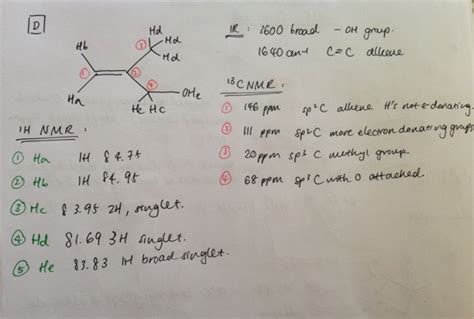 D
IR : 2600 broad - OH group.
1640 cm-1 C=C alkene
Hd
③ Hd
Hb Hd
① ②
④
Ha OHe
Hc Hc
13C NMR :
① 146 ppm sp2 C alkene H's not e-donating
② 111 ppm sp2C more electron donating groups
③ 20 ppm sp3 C methyl group.
④ 68 ppm sp3 C with O attached.
1H NMR :
① Ha 1H δ4.75
② Hb 1H δ4.95
③ Hc δ3.95 2H, singlet.
④ Hd δ1.69 3H singlet.
⑤ He δ3.83 1H broad singlet.